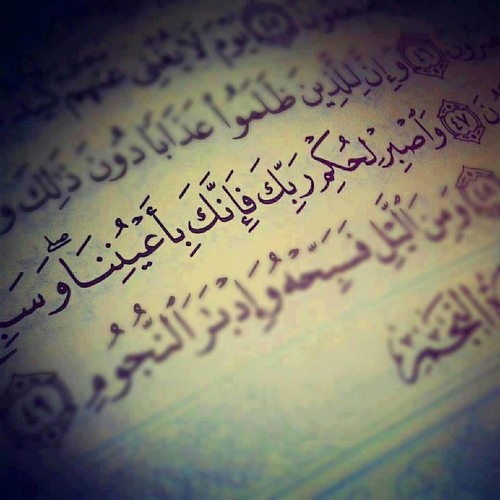 ٤٥ يَوْمَ لَا يُغْنِى عَنْهُمْ
٤٦ وَإِنَّ لِلَّذِينَ ظَلَمُوا۟ عَذَابًا دُونَ ذَٰلِكَ
٤٧ وَٱصْبِرْ لِحُكْمِ رَبِّكَ فَإِنَّكَ بِأَعْيُنِنَا ۖ وَسَبِّ
٤٨ وَمِنَ ٱلَّيْلِ فَسَبِّحْهُ وَإِدْبَـٰرَ ٱلنُّجُومِ ٤٩
ٱلنَّجْمِ